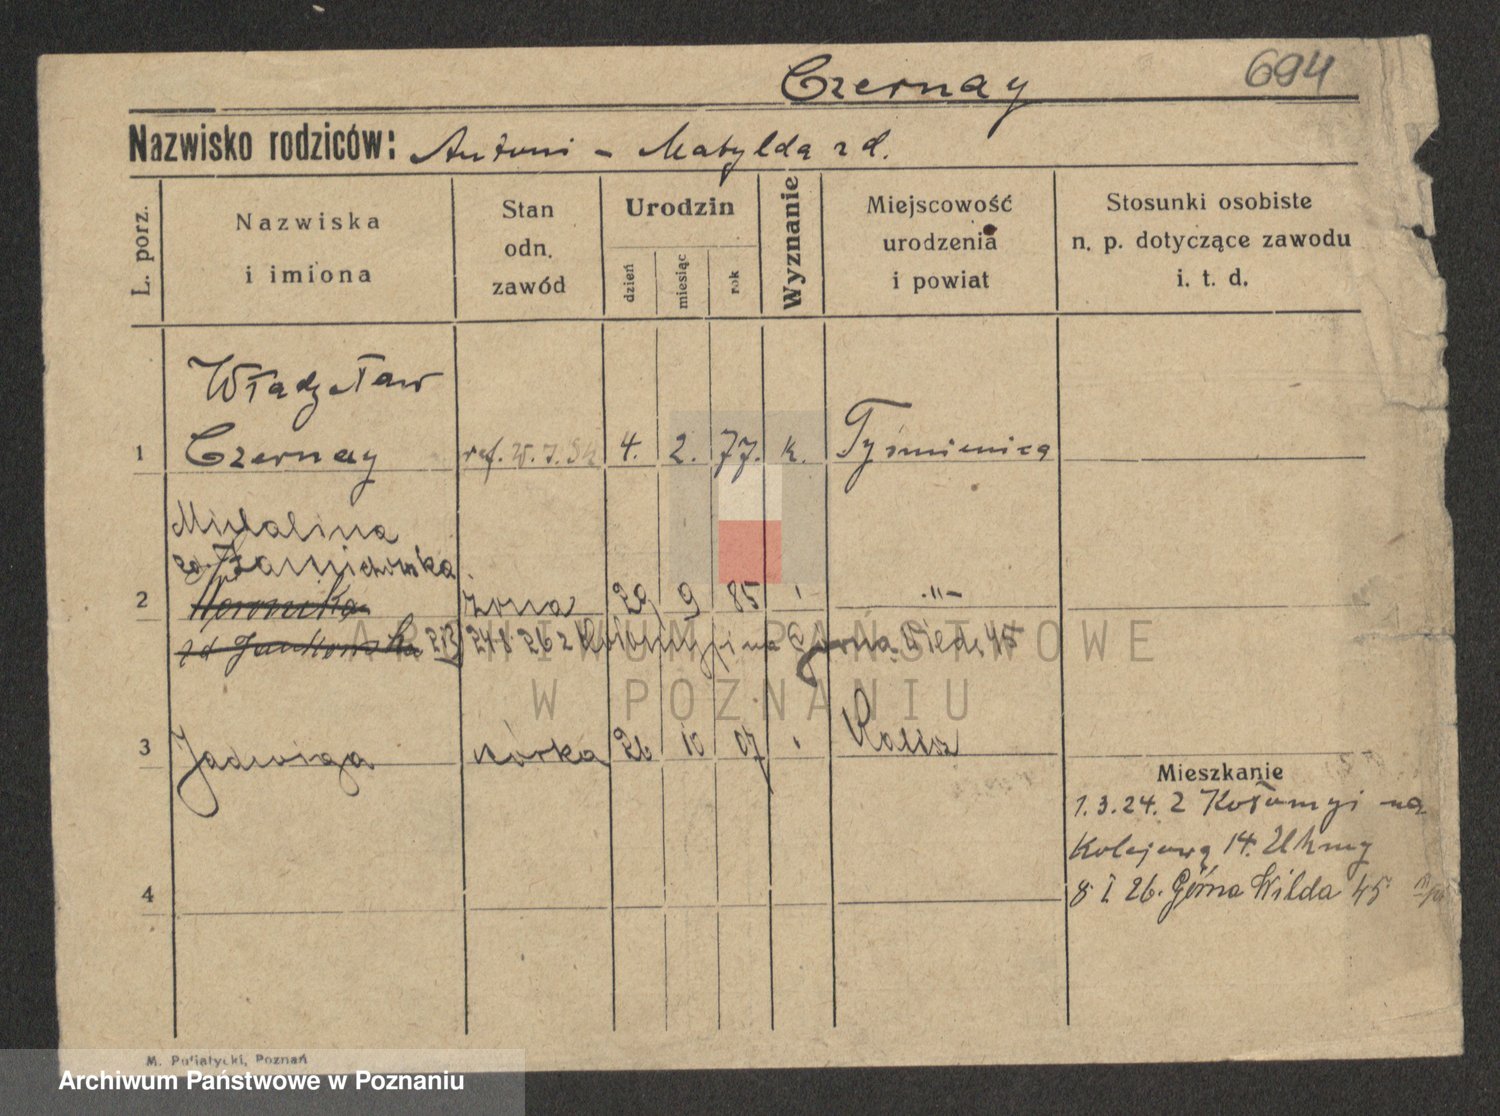 Czernay 694
Nazwisko rodziców: Antoni - Matylda z d.
L. porz.
Nazwiska
i imiona
Stan
odn.
zawód
Urodzin
dzień
miesiąc
rok
Wyznanie
Miejscowość
urodzenia
i powiat
Stosunki osobiste
n. p. dotyczące zawodu
i. t. d.
Władysław
1 Czernay ref. 4. 2. 77. k. Tyśmienica
Michalina
zd.
2 żona 29 9 85 " -"-
zd Jankowska 24 8 26 z Kołomyji na Górna Wilda 45
3 Jadwiga córka 26 10 07 "
Mieszkanie
1.3.24. z Kołomyi na
Kolejową 14.
4 8 I 26. Górna Wilda 45
ARCHIWUM PAŃSTWOWE
W POZNANIU
M. Putiatycki, Poznań
Archiwum Państwowe w Poznaniu